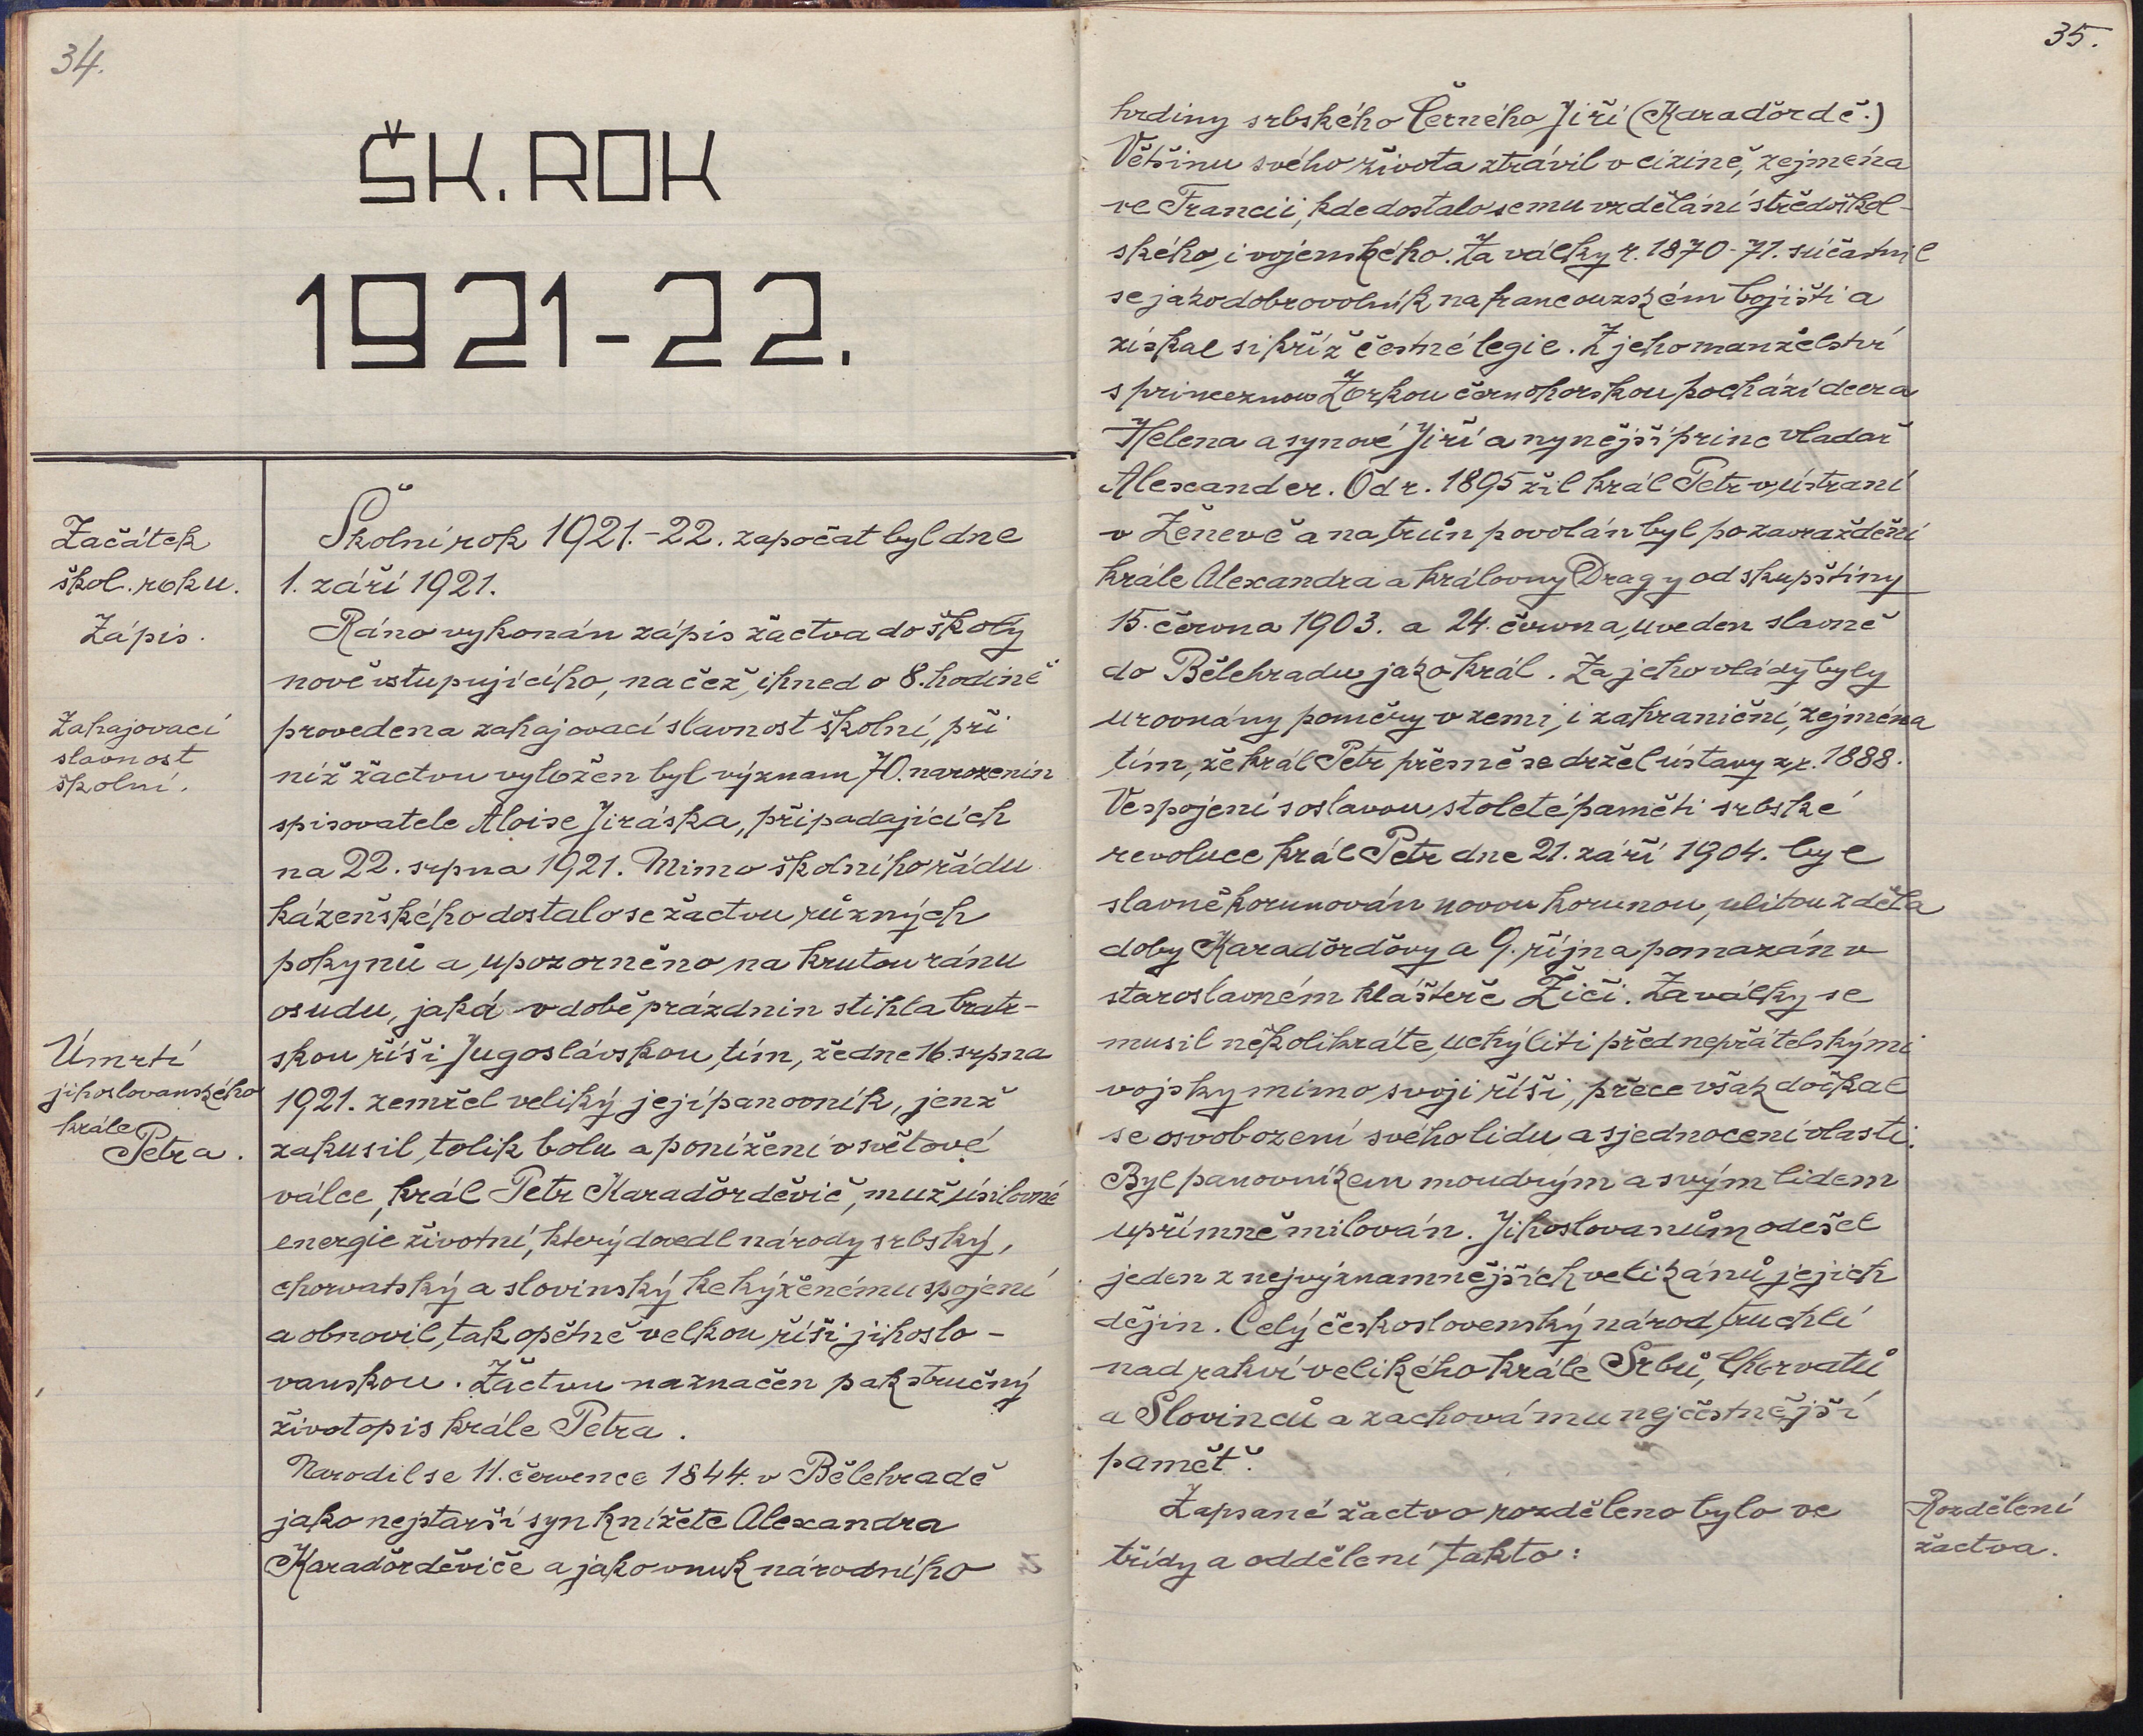 34.
ŠK. ROK
1921-22.
Začátek
škol. roku.
Zápis.
Zahajovací
slavnost
školní.
Úmrtí
jihoslovanského
krále
Petra.
Školní rok 1921.-22. započat byl dne
1. září 1921.
Ráno vykonán zápis žactva do školy
nově vstupujícího, načež ihned o 8. hodině
provedena zahajovací slavnost školní, při
níž žactvu vyložen byl význam 70. narozenin
spisovatele Aloise Jiráska, připadajících
na 22. srpna 1921. Mimo školního řádu
kázeňského dostalo se žactvu různých
pokynů a upozorněno na krutou ránu
osudu, jaká v době prázdnin stihla brat-
skou říši Jugoslávskou tím, že dne 16. srpna
1921. zemřel veliký její panovník, jenž
zakusil tolik bolu a ponížení v světové
válce, král Petr Karaďorděvič, muž úsilovné
energie životní, který dovedl národy srbský,
chorvatský a slovinský ke kýženému spojení
a obnovil tak opětně velkou říši jihoslo-
vanskou. Žactvu naznačen pak stručný
životopis krále Petra.
Narodil se 11. července 1844. v Bělehradě
jako nejstarší syn knížete Alexandra
Karaďorděviče a jako vnuk národního
35.
hrdiny srbského Černého Jiří (Karaďordě.)
Většinu svého života ztrávil v cizině, zejména
ve Francii, kde dostalo se mu vzdělání středoškol-
ského i vojenského. Za války r. 1870-71. súčastnil
se jako dobrovolník na francouzském bojišti a
získal si kříž čestné legie. Z jeho manželství
s princeznou Zorkou černohorskou pochází dcera
Helena a synové Jiří a nynější princ vladař
Alexander. Od r. 1895 žil král Petr v ústraní
v Ženevě a na trůn povolán byl po zavraždění
krále Alexandra a královny Dragy od skupštiny
15. června 1903. a 24. června uveden slavně
do Bělehradu jako král. Za jeho vlády byly
urovnány poměry v zemi i zahraniční, zejména
tím, že král Petr přesně se držel ústavy z r. 1888.
Ve spojení s oslavou stoleté paměti srbské
revoluce král Petr dne 21. září 1904. byl
slavně korunován novou korunou, ulitou z děla
doby Karaďorďovy a 9. října pomazán v
staroslavném klášteře Žiči. Za války se
musil několikráte uchýliti před nepřátelskými
vojsky mimo svoji říši, přece však dočkal
se osvobození svého lidu a sjednocení vlasti.
Byl panovníkem moudrým a svým lidem
upřímně milován. Jihoslovanům odešel
jeden z nejvýznamnějších velikánů jejich
dějin. Celý československý národ truchlí
nad rakví velikého krále Srbů, Chorvatů
a Slovinců a zachová mu nejčestnější
paměť.
Zapsané žactvo rozděleno bylo ve
třídy a oddělení takto:
Rozdělení
žactva.